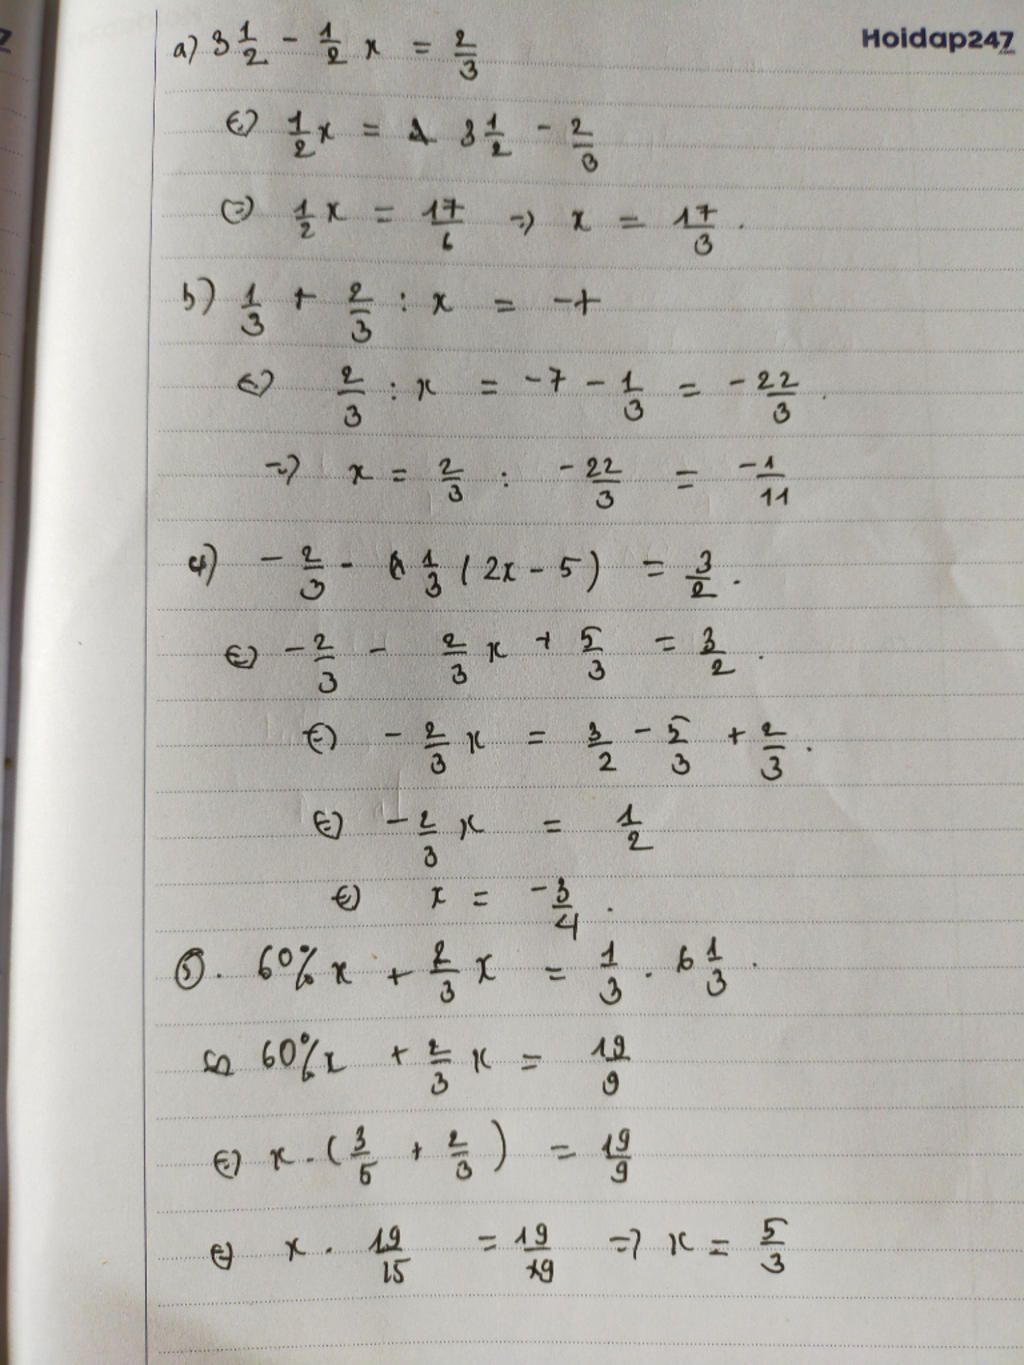 Hoidap247
a) 3 1/2 - 1/2 x = 2/3
<=> 1/2 x = 3 1/2 - 2/3
<=> 1/2 x = 17/6 => x = 17/3 .
b) 1/3 + 2/3 : x = -7
<=> 2/3 : x = -7 - 1/3 = -22/3 .
=> x = 2/3 : -22/3 = -1/11
4) - 2/3 - 1/3 (2x - 5) = 3/2 .
<=> -2/3 - 2/3 x + 5/3 = 3/2 .
<=> - 2/3 x = 3/2 - 5/3 + 2/3 .
<=> - 2/3 x = 1/2
<=> x = -3/4 .
5) . 60% x + 2/3 x = 1/3 . 6 1/3 .
<=> 60% x + 2/3 x = 19/9
<=> x . ( 3/5 + 2/3 ) = 19/9
<=> x . 19/15 = 19/9 => x = 5/3